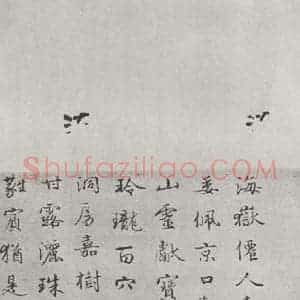 海嶽僊人
佩京口
山靈獻寶
玲瓏百穴
洞房嘉樹
甘露灑珠
賓猶是
Shufaziliao.COM